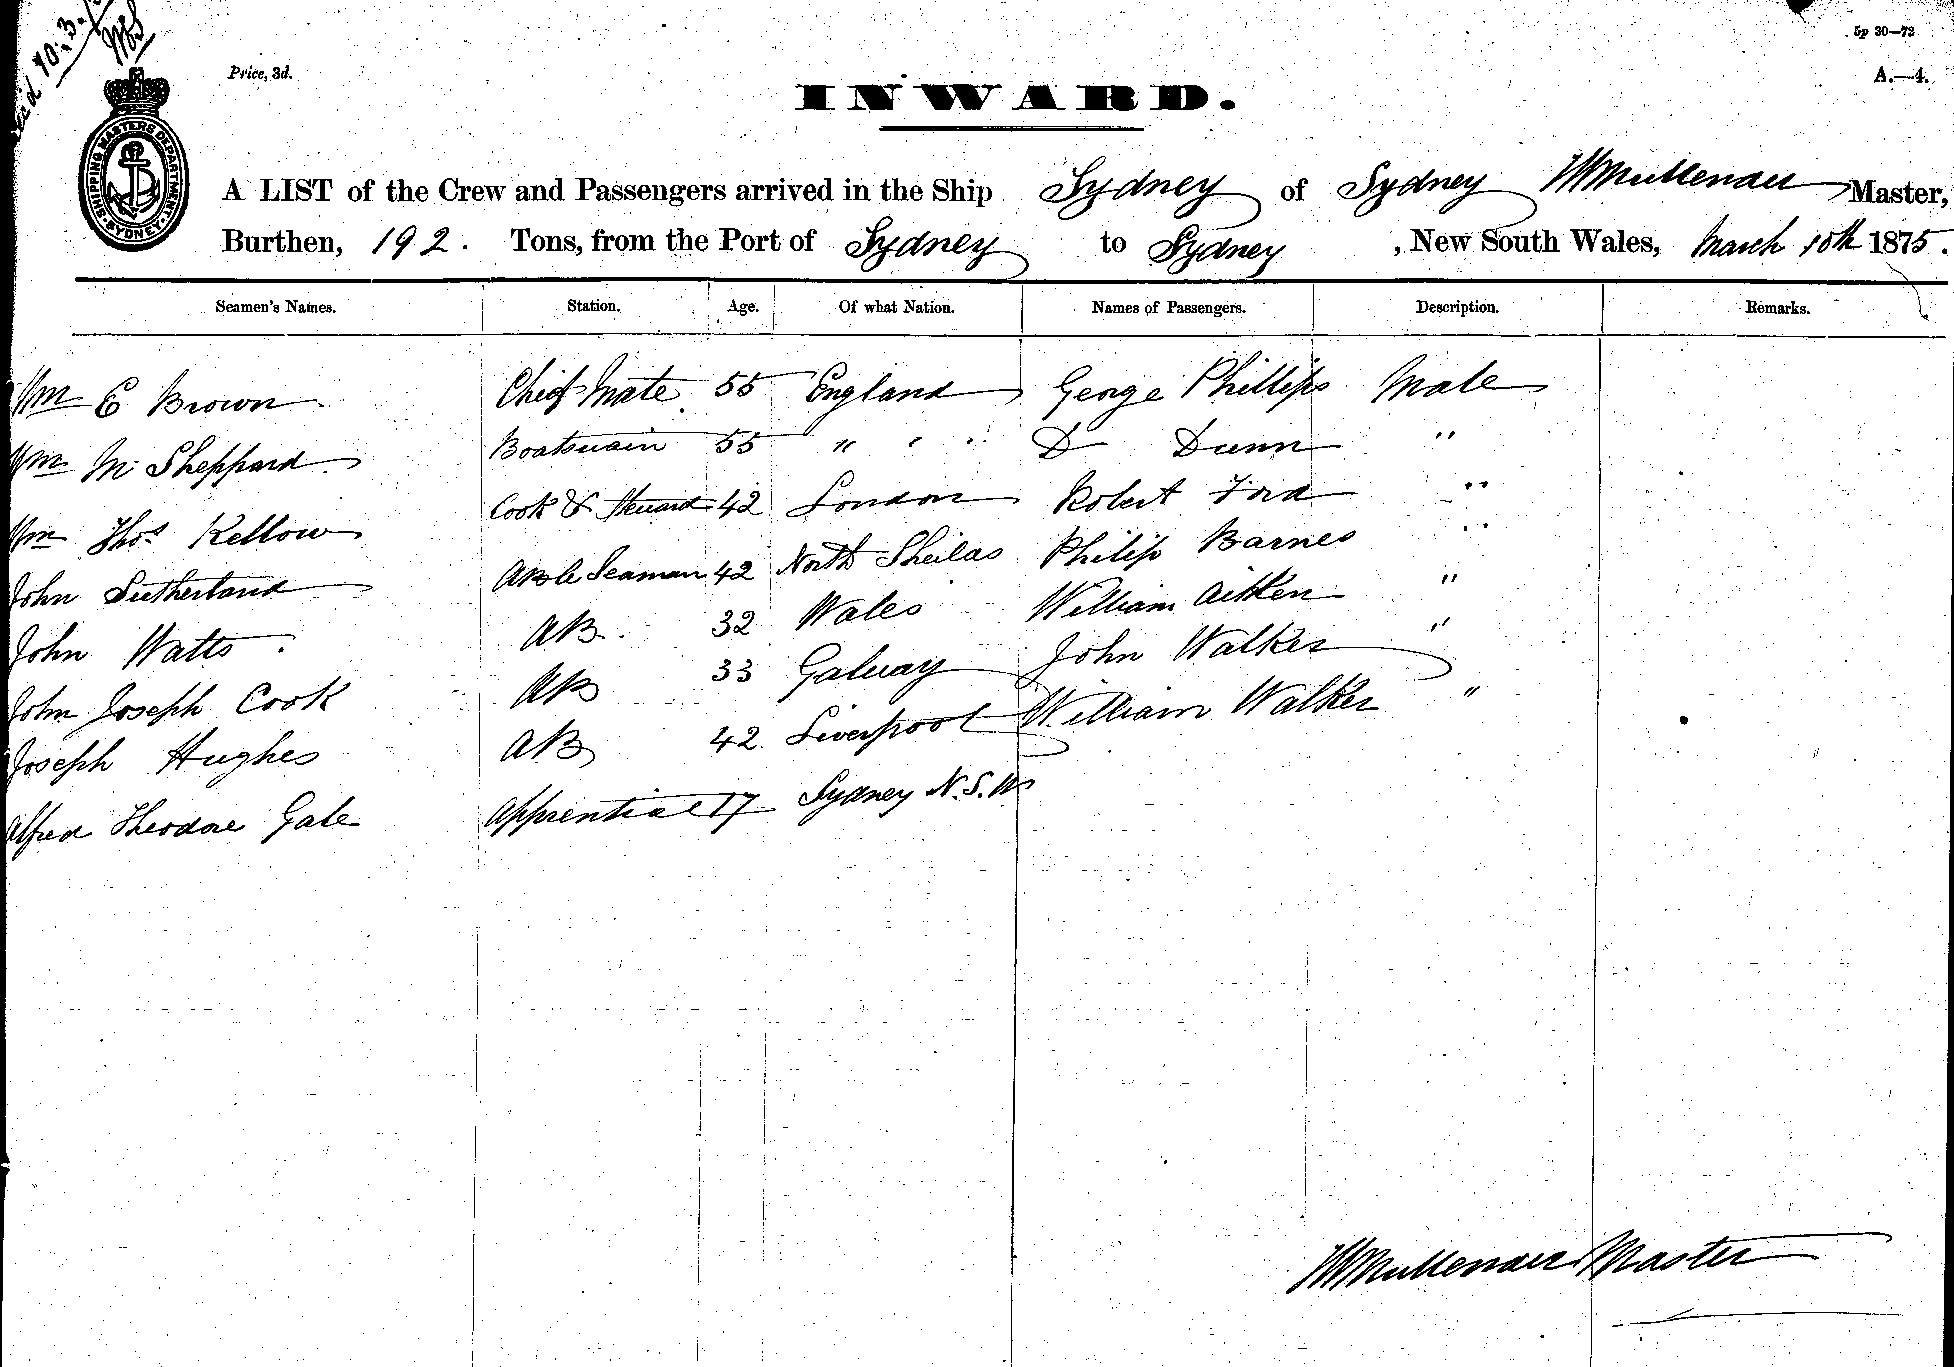 10.3.
5p 30—72
Price, 3d.
A.—4.
INWARD.
SHIPPING MASTERS DEPARTMENT. SYDNEY.
A LIST of the Crew and Passengers arrived in the Ship Sydney of Sydney W Mullender Master,
Burthen, 192. Tons, from the Port of Sydney to Sydney, New South Wales, March 10th 1875.
Seamen's Names. Station. Age. Of what Nation. Names of Passengers. Description. Remarks.
Wm E Brown Chief Mate 55 England George Phillips Male
Wm M Sheppard Boatswain 55 " " " D Dunn "
Wm Thos Kellow Cook & Steward 42 London Robert Ford "
John Sutherland Able Seaman 42 North Sheilds Philip Barnes "
John Watts AB 32 Wales William Aitken "
John Joseph Cook AB 33 Galway John Walker "
Joseph Hughes AB 42 Liverpool William Walker "
Alfred Theodore Gale Apprentice 17 Sydney N.S.W
W Mullender Master